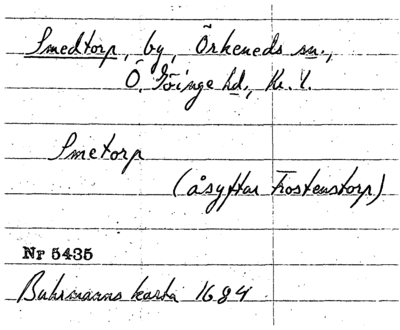 Smedtorp, by, Örkeneds sn.,
Ö. Göinge hd., Kr. l.
Smetorp
(åsyftar Trostenstorp)
Nr 5435
Buhrmanns karta 1684